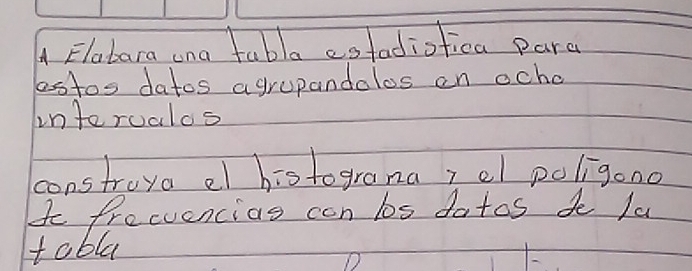 1 Elabara una tabla estadistica para
estos datos agrupandolos en ocho
intervalos
construya el histograna y el poligono
de frecuencias con los datos de la
tabla